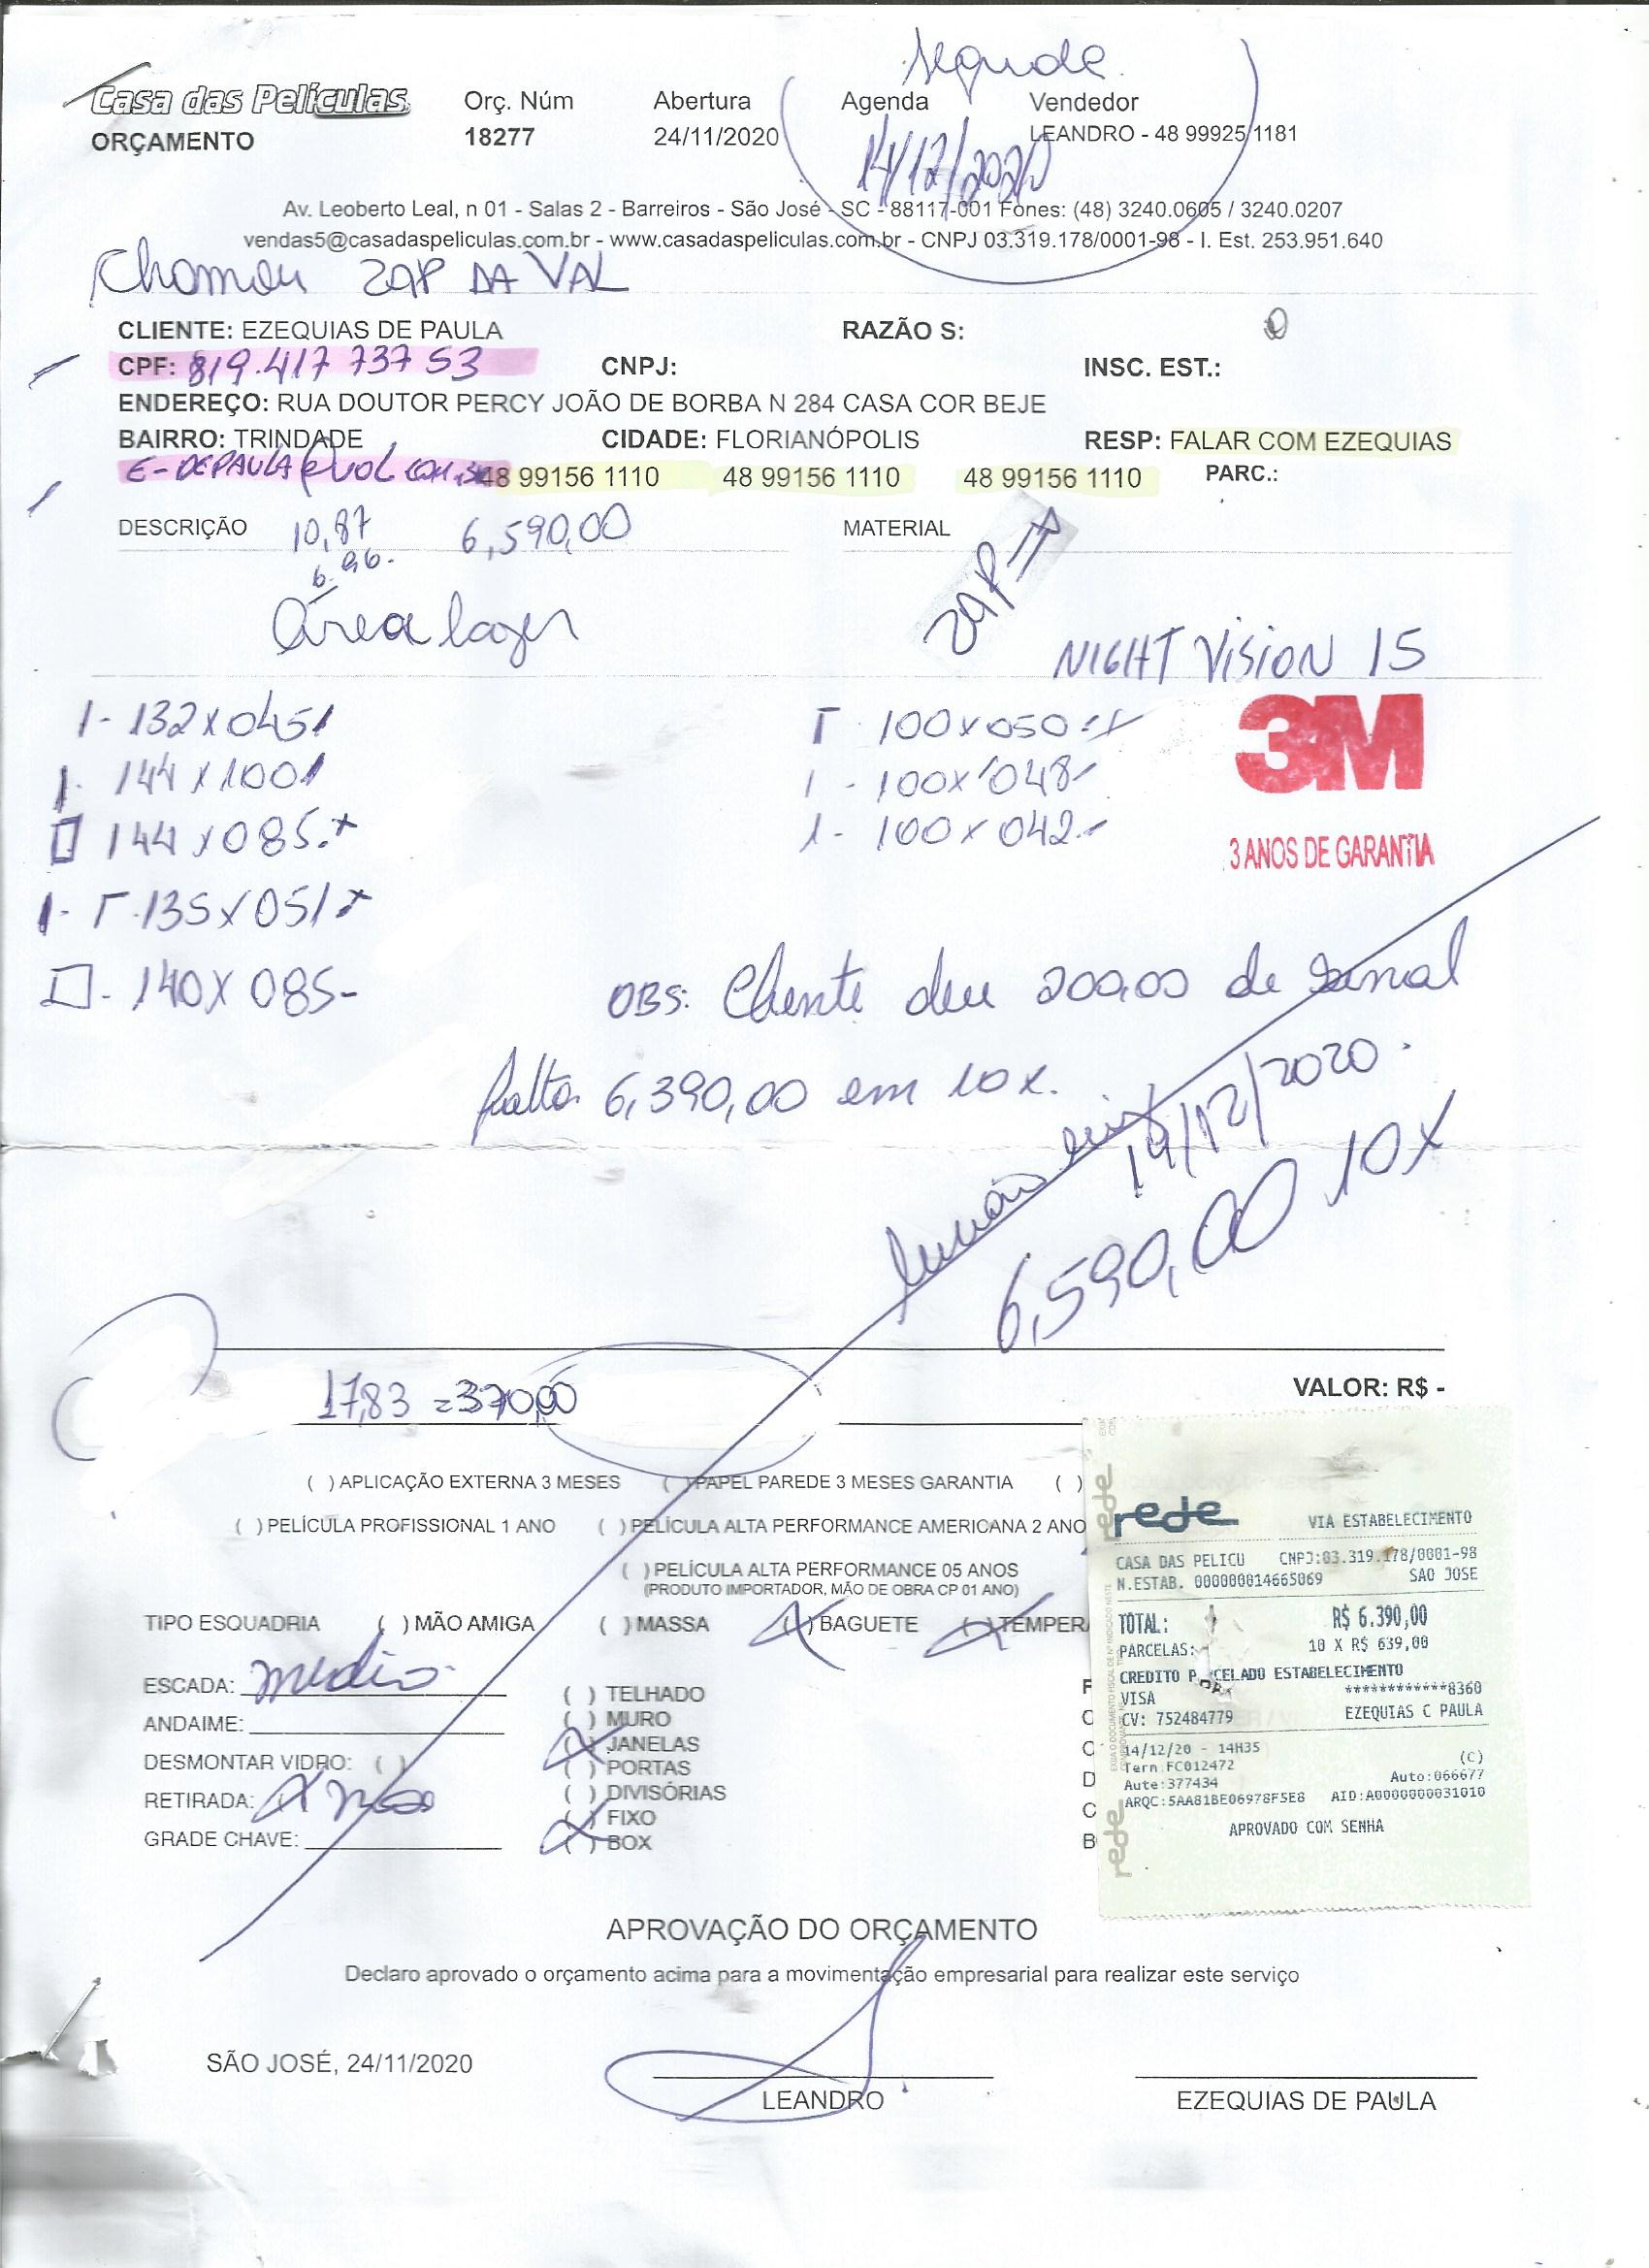 Segunda
Casa das Películas Orç. Núm Abertura Agenda Vendedor
ORÇAMENTO 18277 24/11/2020 14/12/2020 LEANDRO - 48 99925 1181
Av. Leoberto Leal, n 01 - Salas 2 - Barreiros - São José - SC - 88117-001 Fones: (48) 3240.0605 / 3240.0207
vendas5@casadaspeliculas.com.br - www.casadaspeliculas.com.br - CNPJ 03.319.178/0001-98 - I. Est. 253.951.640
Chamou ZAP DA VAL
CLIENTE: EZEQUIAS DE PAULA RAZÃO S:
CPF: 819.417 737 53 CNPJ: INSC. EST.:
ENDEREÇO: RUA DOUTOR PERCY JOÃO DE BORBA N 284 CASA COR BEJE
BAIRRO: TRINDADE CIDADE: FLORIANÓPOLIS RESP: FALAR COM EZEQUIAS
E-DEPAULA@UOL.COM. 48 99156 1110 48 99156 1110 48 99156 1110 PARC.:
DESCRIÇÃO 10,87 6,590,00 MATERIAL
6.96. ZAP
Área lazer
NIGHT VISION 15
1- 132x045 T 100x050
1- 144x100 1 - 100x048-
144x085 1- 100x042-
3M
3 ANOS DE GARANTIA
1- T 135x051
140x085-
OBS: Cliente deu 200,00 de sinal
falta 6,390,00 em 10x.
14/12/2020
6,590,00 10x
17,83 = 370,00
VALOR: R$ -
( ) APLICAÇÃO EXTERNA 3 MESES ( ) PAPEL PAREDE 3 MESES GARANTIA ( )
( ) PELÍCULA PROFISSIONAL 1 ANO ( ) PELÍCULA ALTA PERFORMANCE AMERICANA 2 ANO
( ) PELÍCULA ALTA PERFORMANCE 05 ANOS
(PRODUTO IMPORTADOR, MÃO DE OBRA CP 01 ANO)
TIPO ESQUADRIA ( ) MÃO AMIGA ( ) MASSA (X) BAGUETE (X) TEMPER
ESCADA: médio
ANDAIME:
DESMONTAR VIDRO: ( )
RETIRADA:
GRADE CHAVE:
( ) TELHADO
( ) MURO
(X) JANELAS
( ) PORTAS
( ) DIVISÓRIAS
( ) FIXO
( ) BOX
rede
VIA ESTABELECIMENTO
CASA DAS PELICU CNPJ:03.319.178/0001-98
N.ESTAB. 000000014665069 SAO JOSE
TOTAL: R$ 6.390,00
PARCELAS: 10 X R$ 639,00
CREDITO P CELADO ESTABELECIMENTO
VISA ************8360
CV: 752484779 EZEQUIAS C PAULA
14/12/20 - 14H35
Term.FC012472 (C)
Aute:377434 Auto:066677
ARQC:5AA81BE06978F5E8 AID:A0000000031010
APROVADO COM SENHA
APROVAÇÃO DO ORÇAMENTO
Declaro aprovado o orçamento acima para a movimentação empresarial para realizar este serviço
SÃO JOSÉ, 24/11/2020
LEANDRO EZEQUIAS DE PAULA